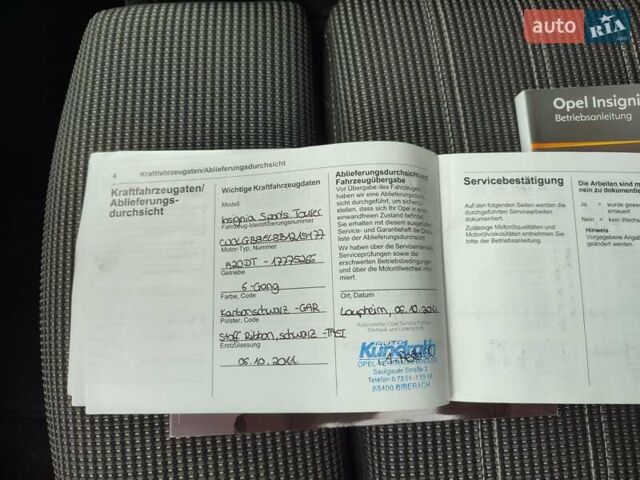 auto RIA.com
Opel Insigni
Betriebsanleitung
4
Kraftfahrzeugaten/Ablieferungsdurchsicht
Kraftfahrzeugaten/
Ablieferungs-
durchsicht
Wichtige Kraftfahrzeugdaten
Modell
Insignia Sports Tourer
Fahrzeug-Identifizierungsnummer
Motor-Typ, Nummer
A20DT - 17775266
Getriebe
6-Gang
Farbe, Code
Karbonschwarz - GAR
Polster, Code
Stoff Ribbon, schwarz - TASI
Erstzulassung
06.10.2011
Ablieferungsdurchsicht und
Fahrzeugübergabe
Vor Übergabe des Fahrzeugs
haben wir eine Ablieferungsdurch-
sicht durchgeführt, um sicherzu-
stellen, dass sich Ihr Opel in einem
einwandfreien Zustand befindet.
Sie erhalten mit diesem ausgefüllten
Service- und Garantieheft die Check-
liste der Ablieferungsdurchsicht.
Wir haben über die Serviceintervalle,
Serviceprüfungen sowie die
erschwerten Betriebsbedingungen
und über die Motorölwechsel infor-
miert.
Ort, Datum
Laupheim, 06.10.2011
Autorisierter Opel Service Partner
Stempel und Unterschrift
AUTO
Kundrath
Saulgauer Straße 3
Telefon 0 73 51-
88400 BIBERACH
Servicebestätigung
Auf den folgenden Seiten werden die
durchgeführten Servicearbeiten
dokumentiert.
Zulässige Motorölqualitäten und
Motorölviskositäten entnehmen Sie
bitte der Betriebsanleitung.
Die Arbeiten sind m
nein zu dokumentier
Ja = wurde gewe
erneuert
Nein = kein Wechs
Hinweis
Vorgegebene Angab
geändert werden.